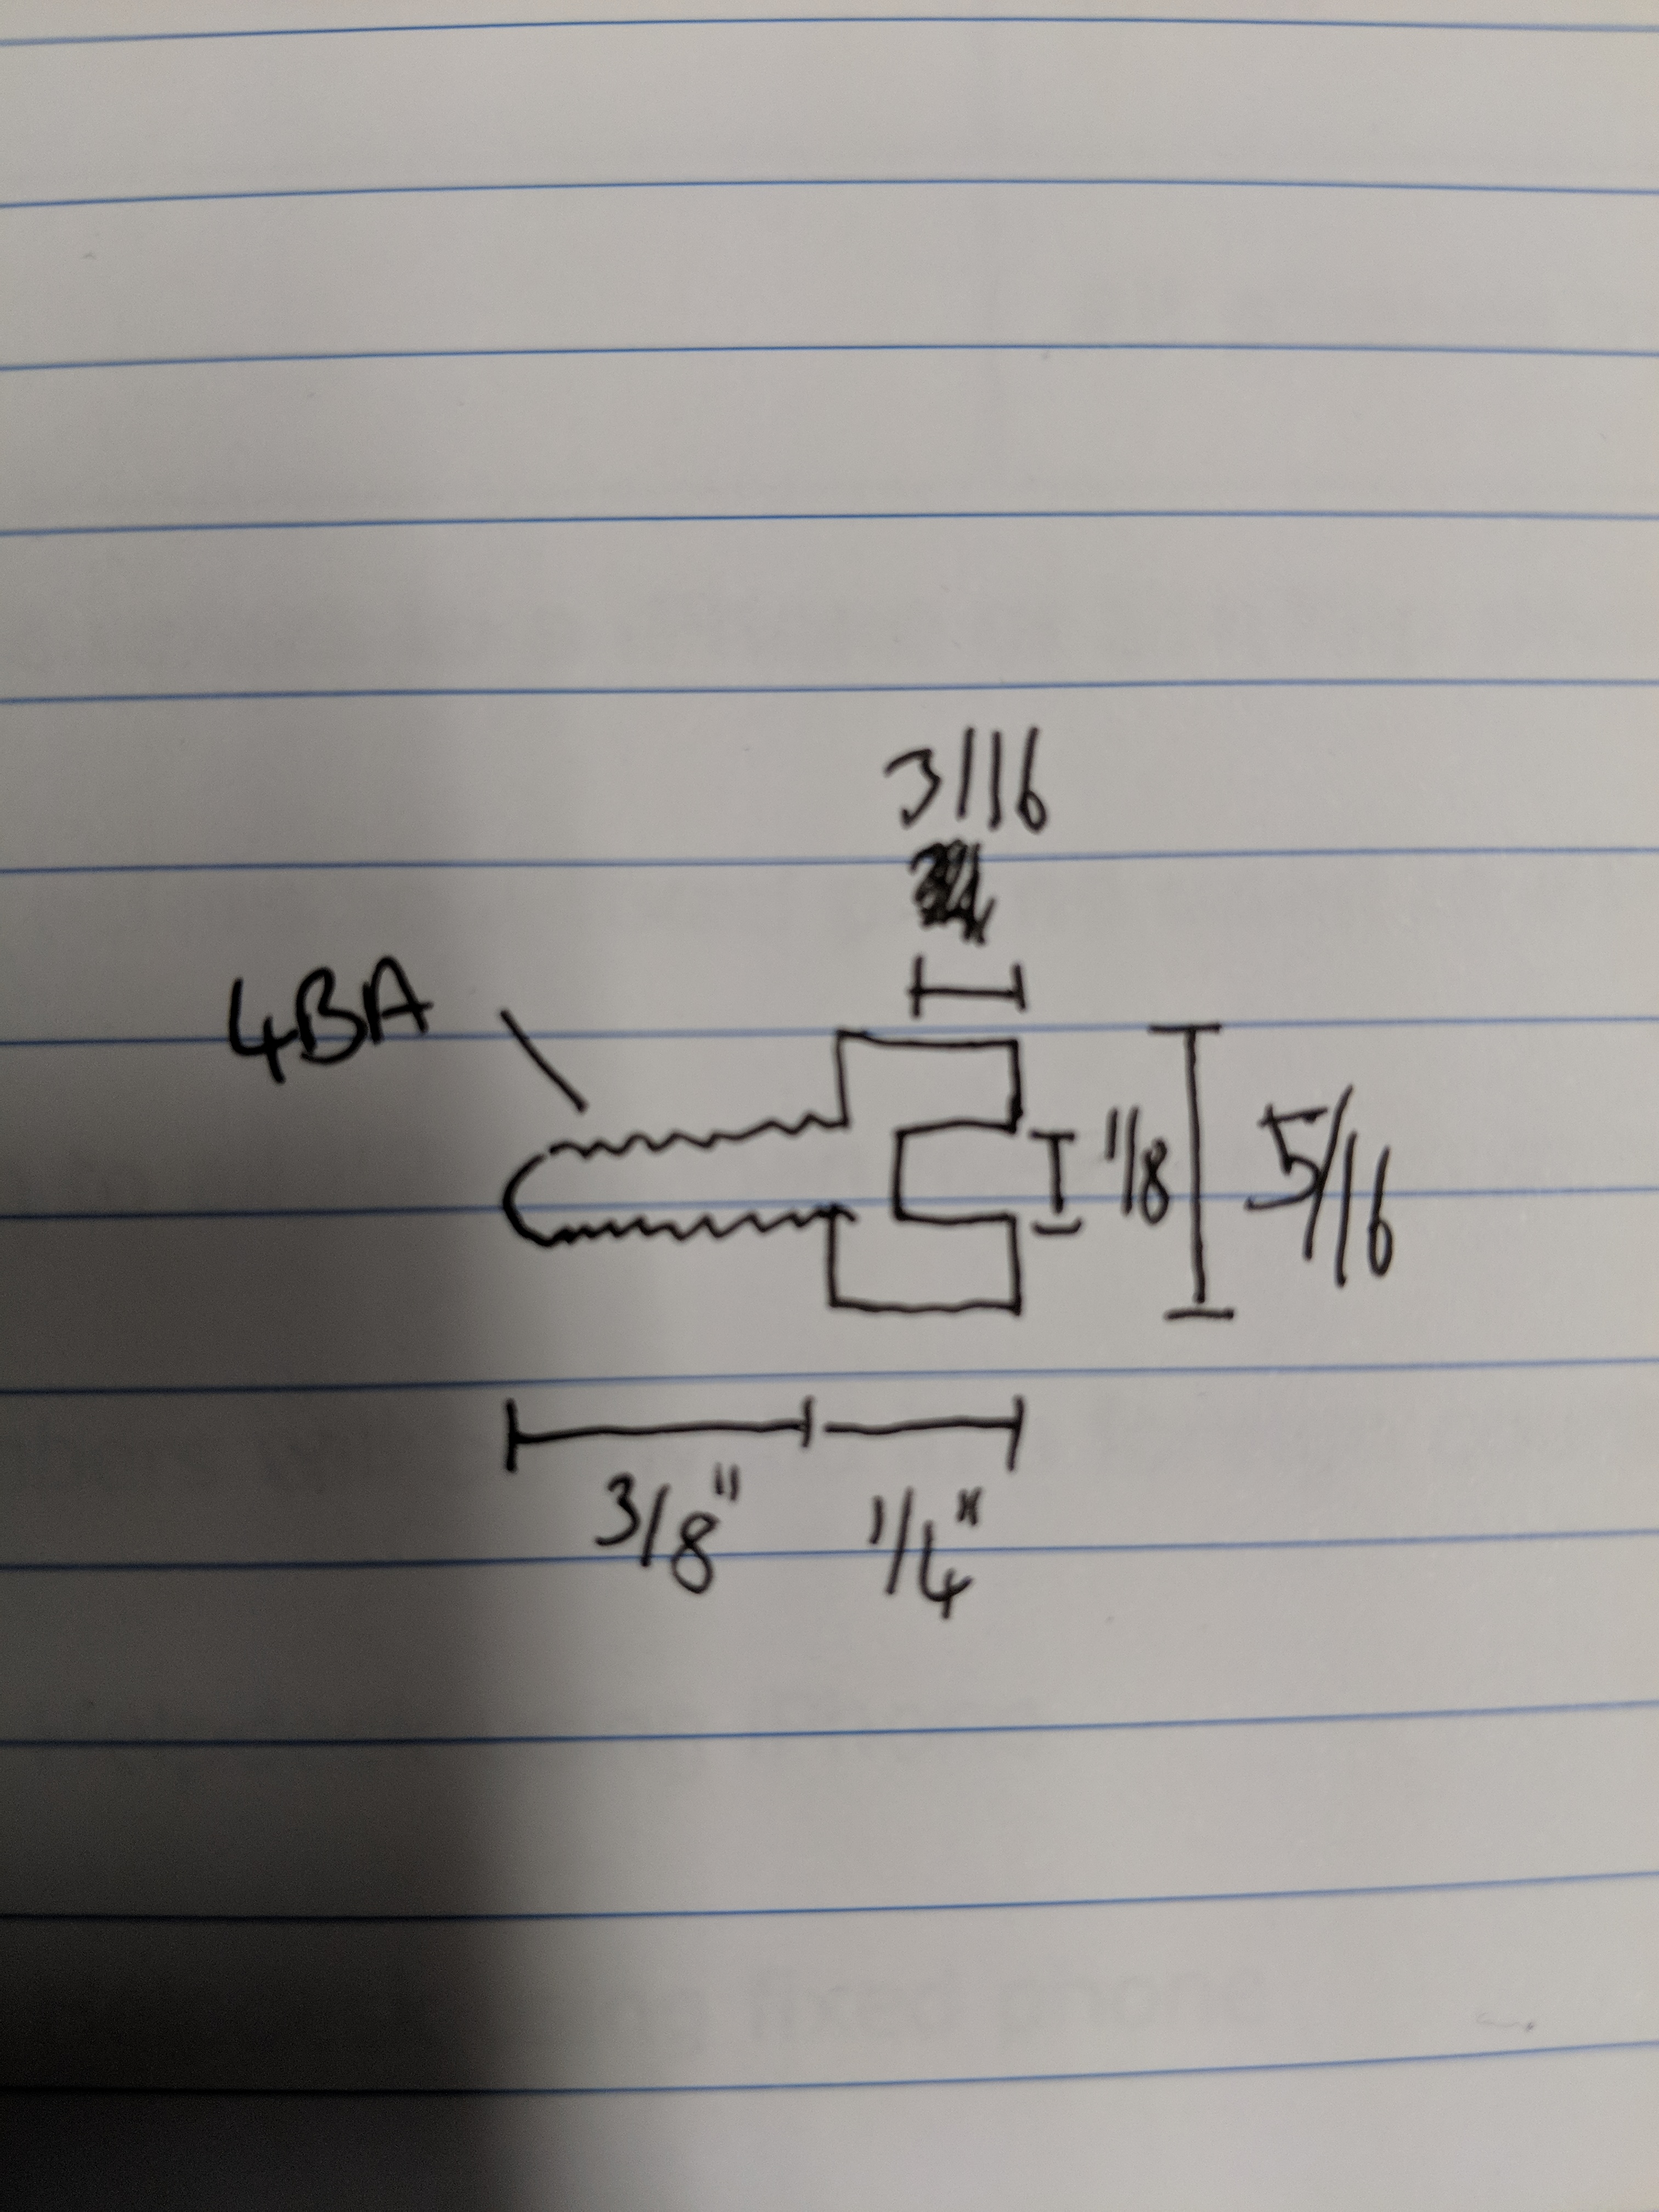 3/16
4BA
1/8
5/16
3/8"
1/4"